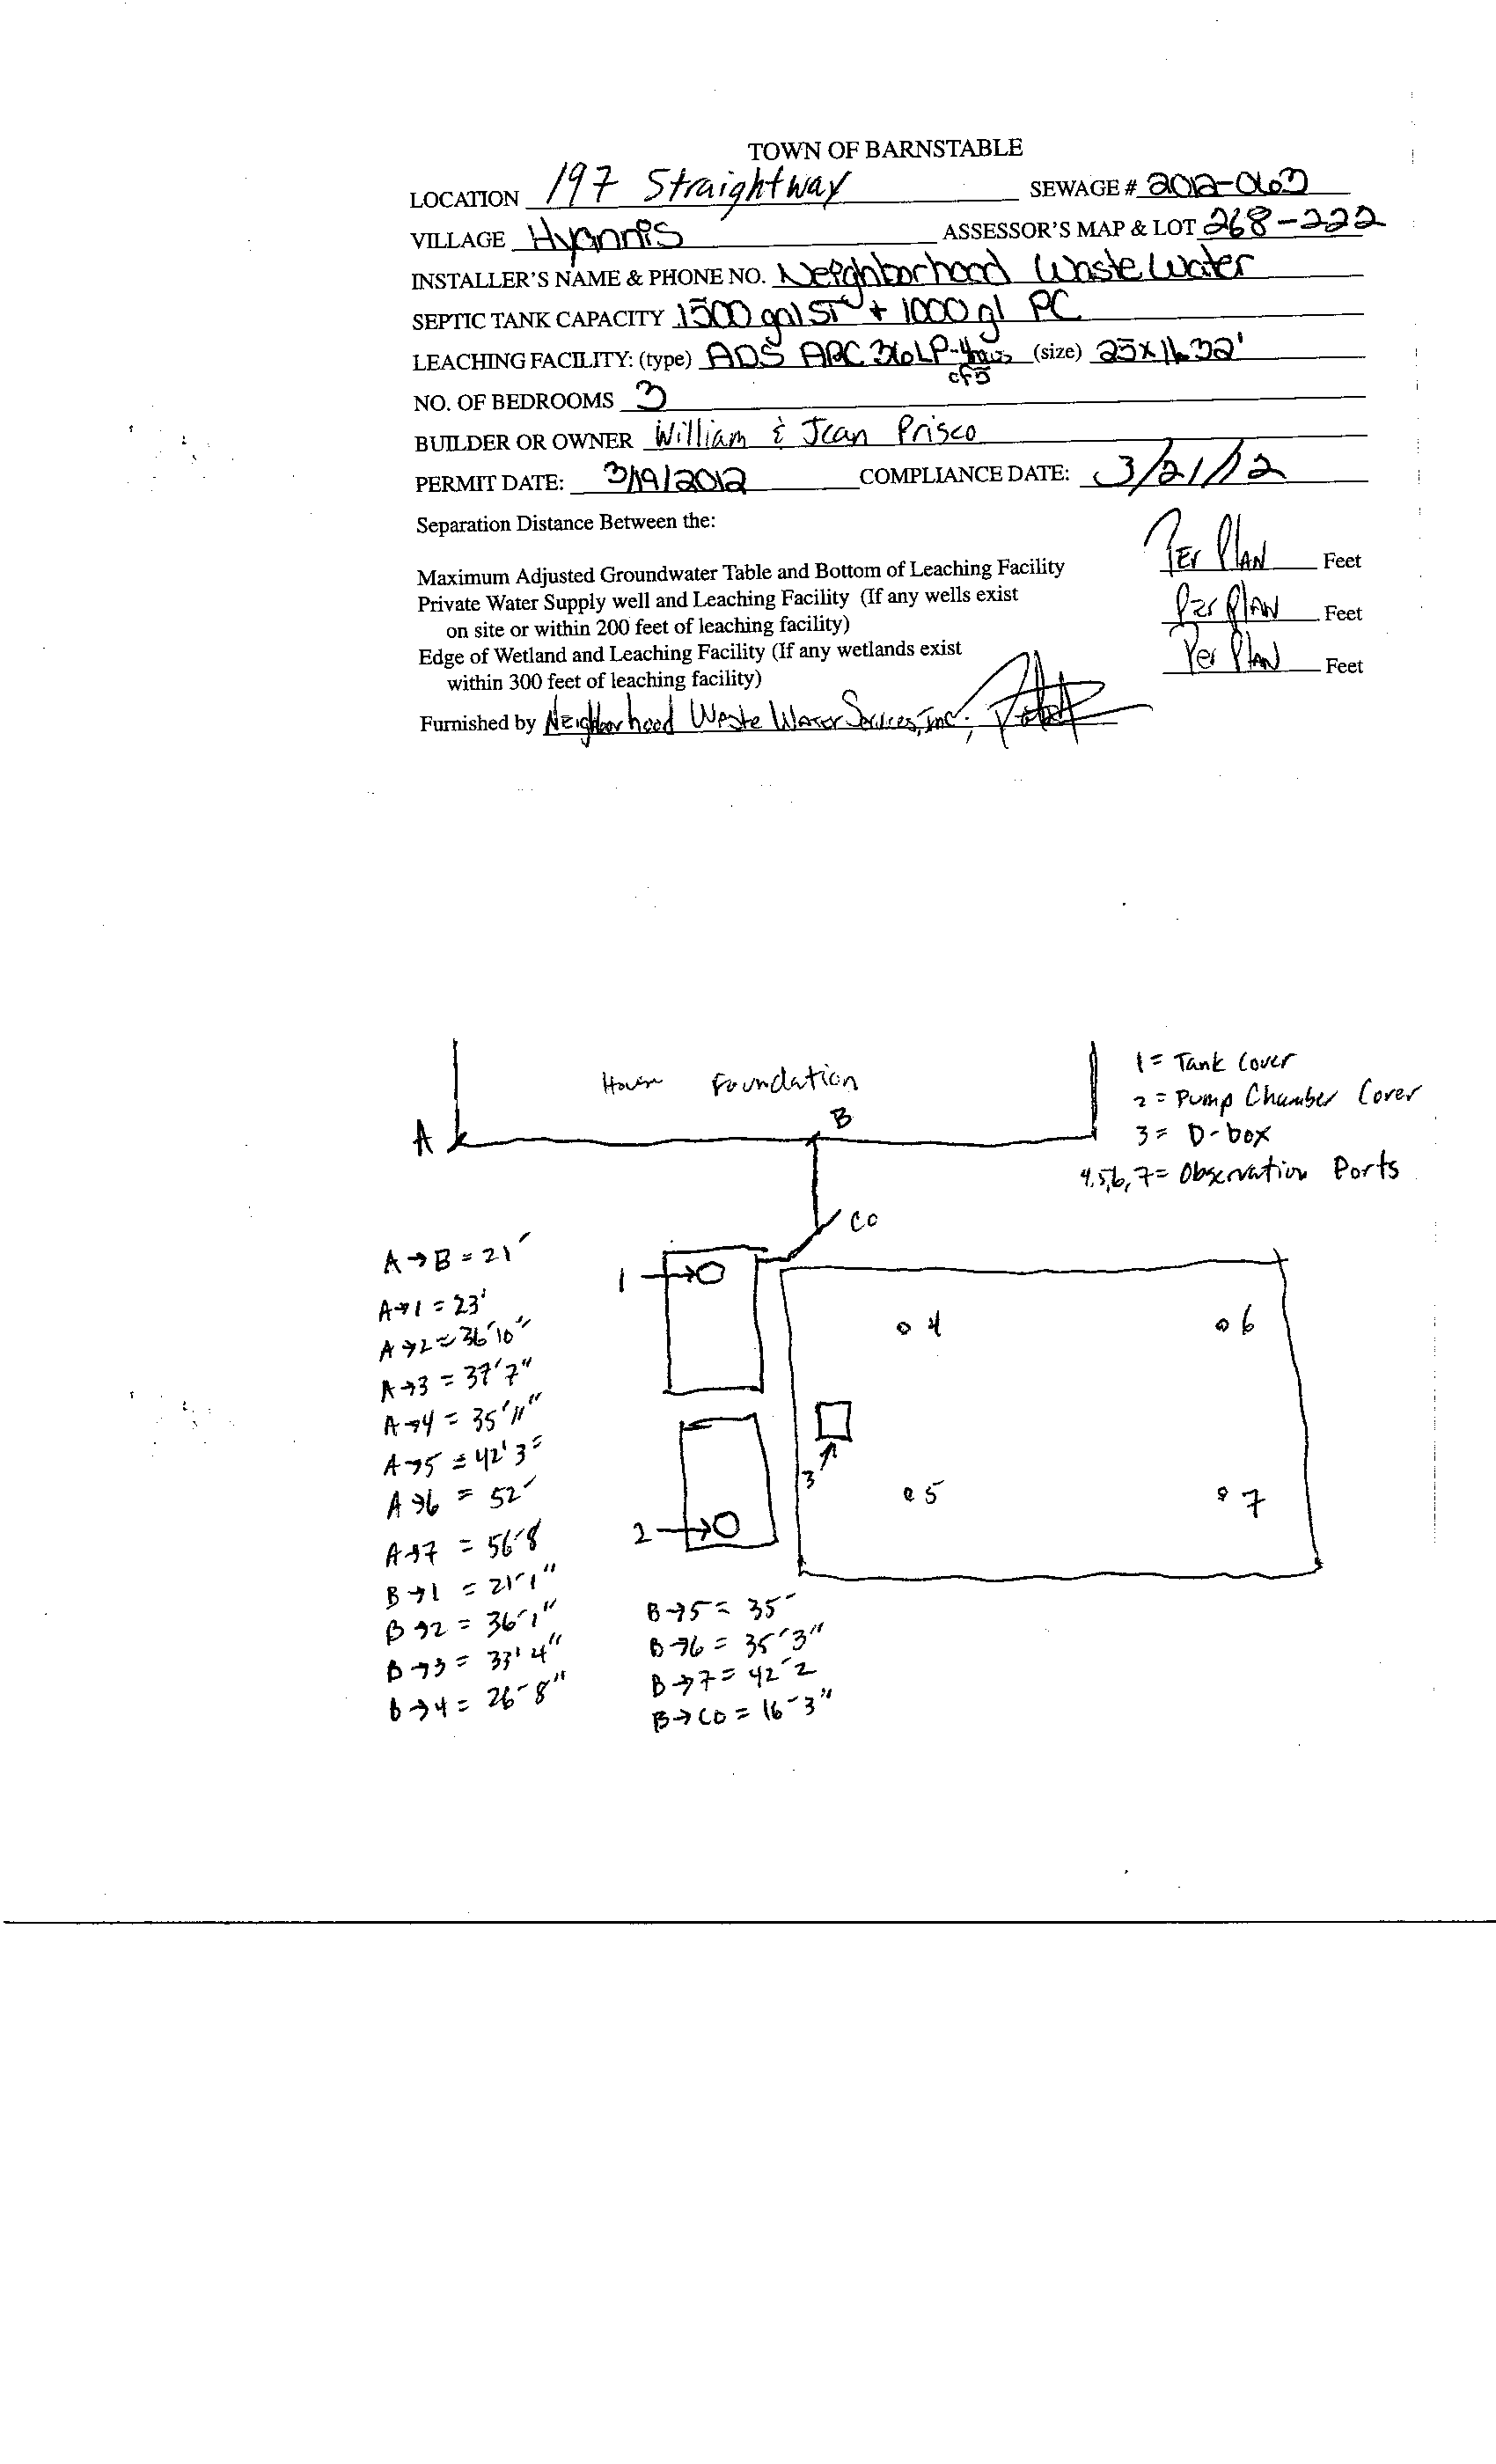 TOWN OF BARNSTABLE
LOCATION 197 Straightway SEWAGE # 2012-063
VILLAGE Hyannis ASSESSOR'S MAP & LOT 268-222
INSTALLER'S NAME & PHONE NO. Neighborhood Waste Water
SEPTIC TANK CAPACITY 1500 gal ST + 1000 gl PC
LEACHING FACILITY: (type) ADS ARC 36LP-4rows (size) 25x16.32'
of 5
NO. OF BEDROOMS 3
BUILDER OR OWNER William & Jean Prisco
PERMIT DATE: 3/19/2012 COMPLIANCE DATE: 3/21/12
Separation Distance Between the:
Maximum Adjusted Groundwater Table and Bottom of Leaching Facility Per Plan Feet
Private Water Supply well and Leaching Facility (If any wells exist
on site or within 200 feet of leaching facility) Per Plan Feet
Edge of Wetland and Leaching Facility (If any wetlands exist
within 300 feet of leaching facility) Per Plan Feet
Furnished by Neighborhood Waste Water Services, Inc.,
House Foundation
A B
1 = Tank Cover
2 = Pump Chamber Cover
3 = D-box
4,5,6,7 = Observation Ports
CO
A→B = 21'
A→1 = 23'
A→2 = 36'10"
A→3 = 37'7"
A→4 = 35'11"
A→5 = 42'3"
A→6 = 52'
A→7 = 56'8
B→1 = 21'1"
B→2 = 36'1"
B→3 = 33'4"
B→4 = 26'8"
B→5 = 35'
B→6 = 35'3"
B→7 = 42'2
B→CO = 16'3"
1
4
6
3
5
7
2